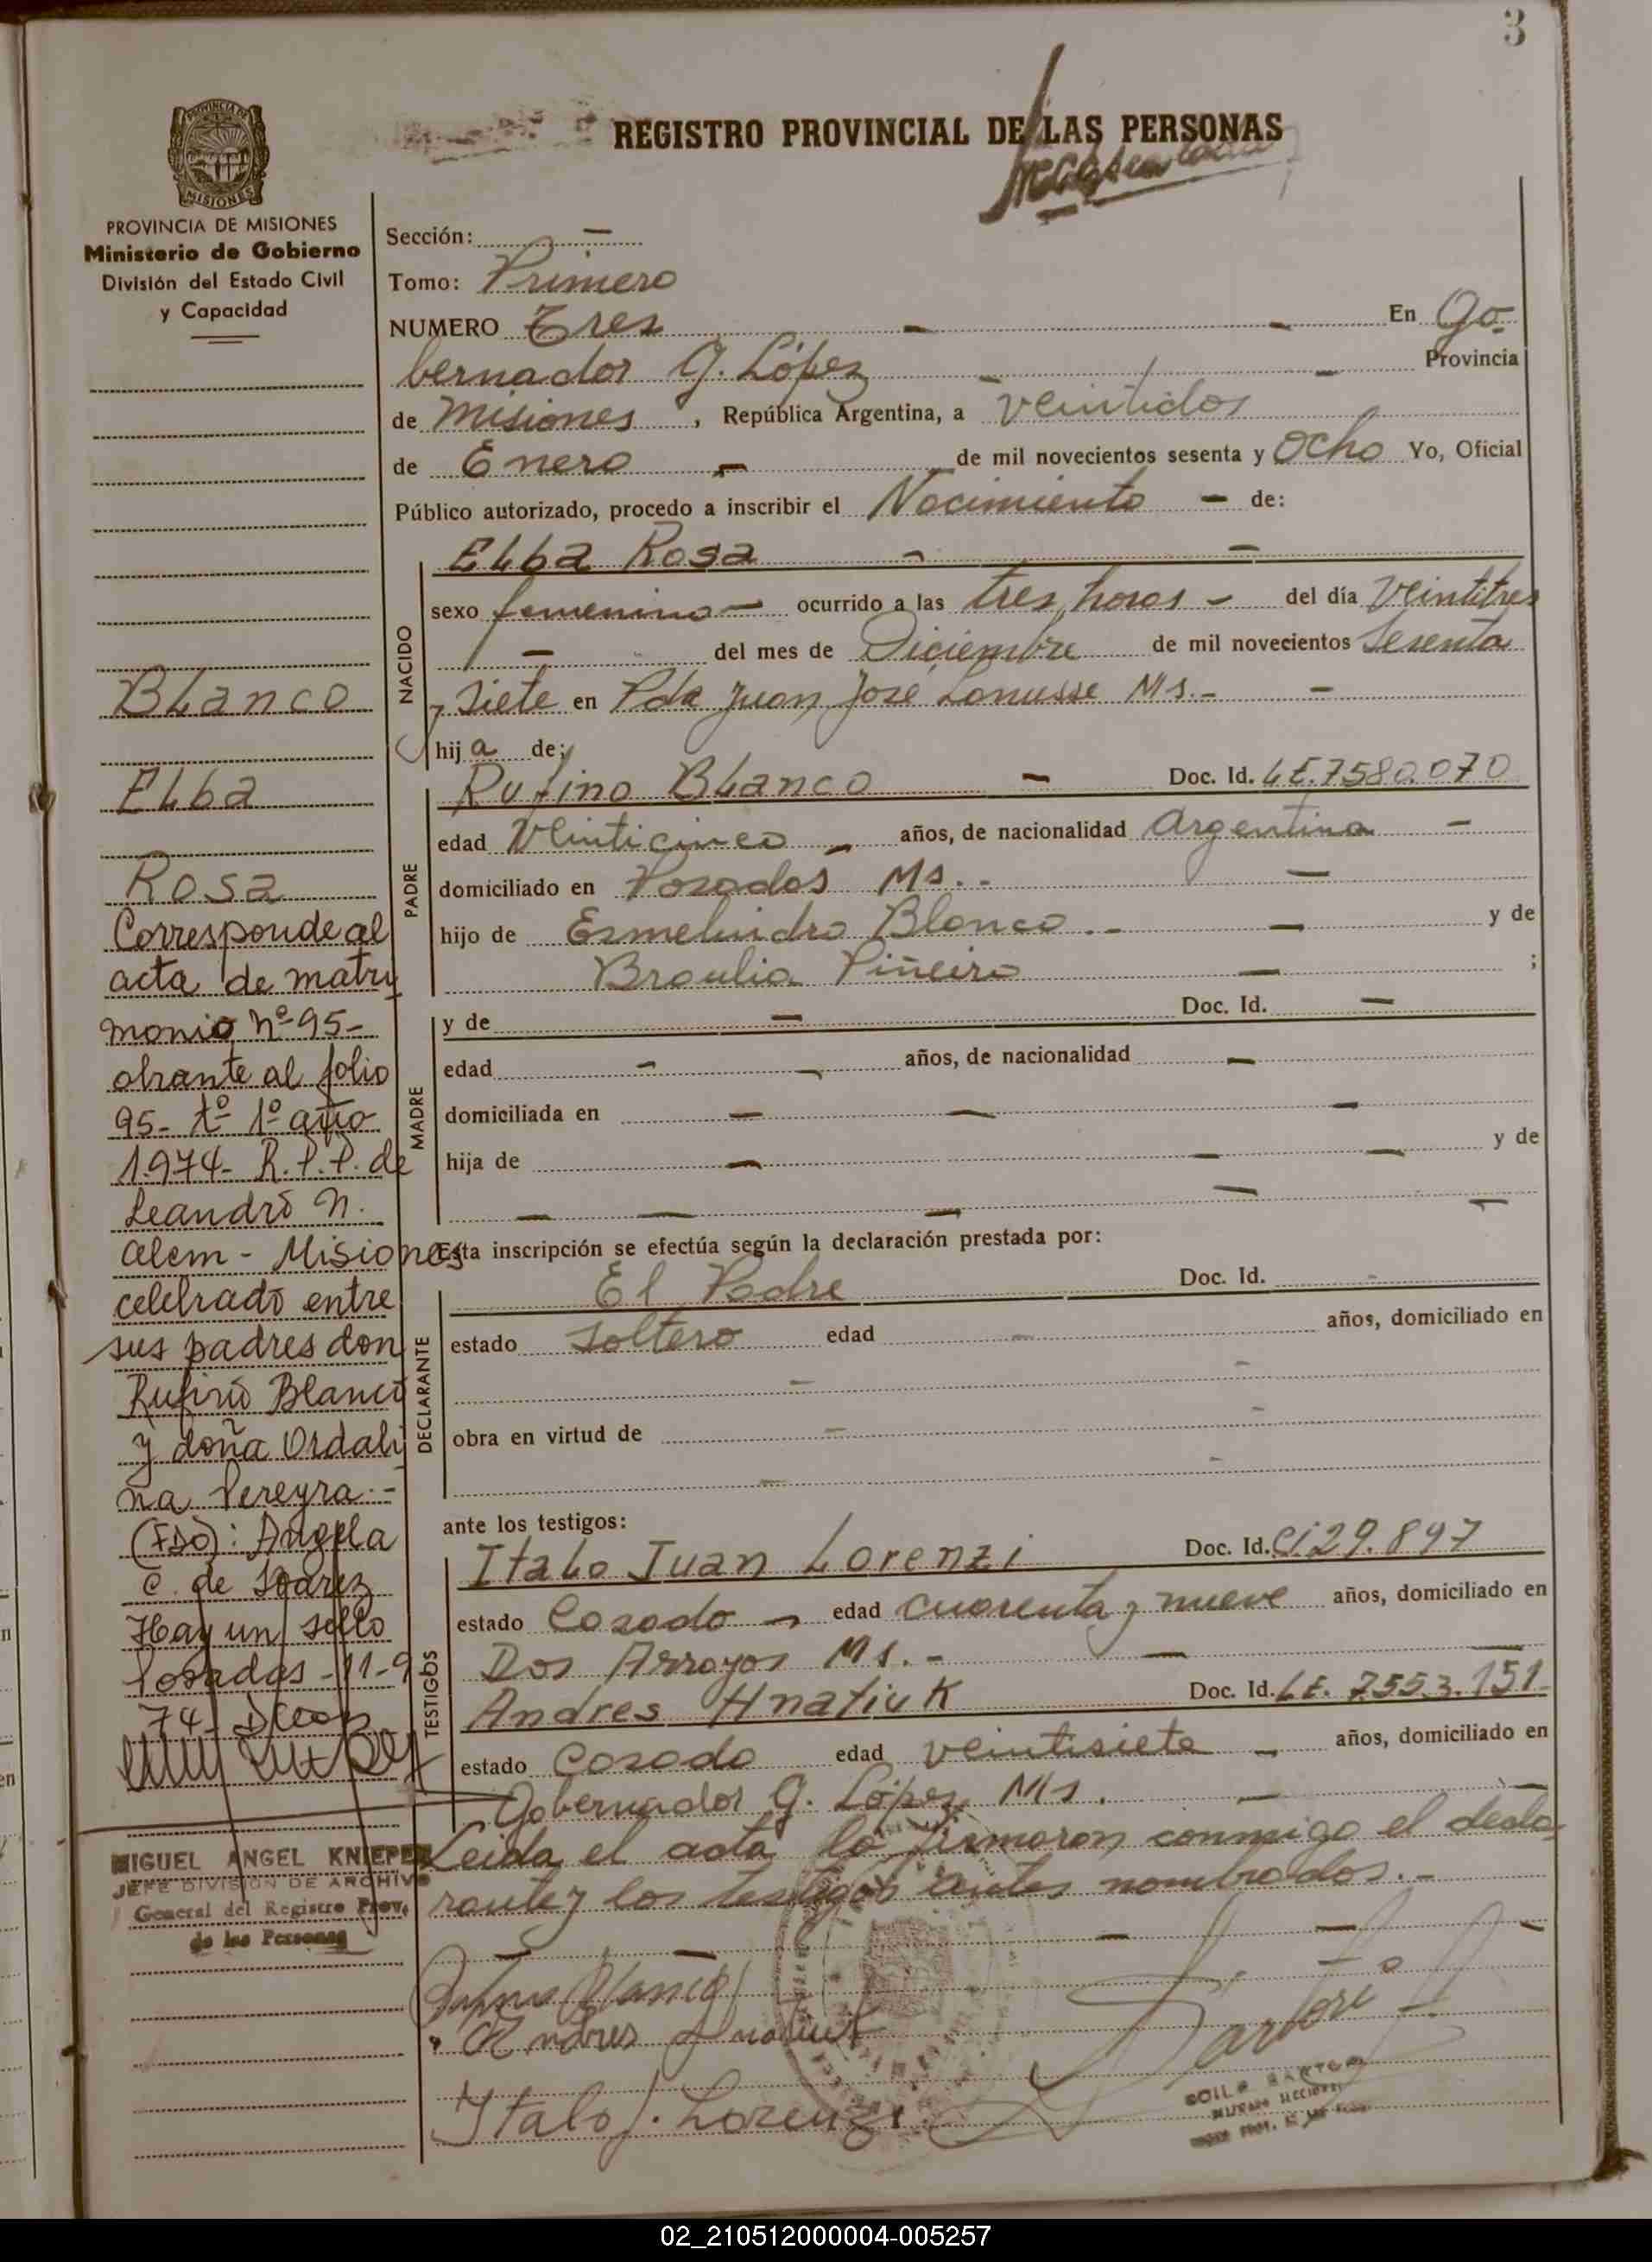 3
REGISTRO PROVINCIAL DE LAS PERSONAS
PROVINCIA DE MISIONES
Ministerio de Gobierno
División del Estado Civil
y Capacidad
Sección: -
Tomo: Primero
NUMERO Tres - - En Go
bernador G. López - - Provincia
de Misiones, República Argentina, a veintidos
de Enero - de mil novecientos sesenta y Ocho Yo, Oficial
Público autorizado, procedo a inscribir el Nacimiento - de:
NACIDO
Elba Rosa - -
sexo femenino - ocurrido a las tres horas - del día Veintitres
- del mes de Diciembre de mil novecientos Sesenta
y Siete en Pda Juan José Lanusse Ms.- -
hija de:
PADRE
Rufino Blanco - Doc. Id. LE.7580.070
edad Veinticinco - años, de nacionalidad Argentina -
domiciliado en Posadas Ms.- -
hijo de Esmelindro Blanco.- - y de
Braulia Piñeiro - ;
MADRE
y de - Doc. Id. -
edad - - años, de nacionalidad -
domiciliada en - - -
hija de - - - y de
- - - - -
Esta inscripción se efectúa según la declaración prestada por:
DECLARANTE
El Padre Doc. Id. -
estado Soltero edad - años, domiciliado en
- -
obra en virtud de - -
- -
ante los testigos:
TESTIGOS
Italo Juan Lorenzi Doc. Id. Ci 29.897
estado Casado - edad cuarenta y nueve años, domiciliado en
Dos Arroyos Ms.- -
Andres Hnatiuk Doc. Id. LE. 7553.151-
estado Casado edad veintisiete - años, domiciliado en
Gobernador G. López Ms. - -
Leida el acta la firmaron conmigo el decla-
rante y los testigos antes nombrados.-
- - - - -
Rufino Blanco
Andres Hnatiuk
Italo J. Lorenzi
Blanco
Elba
Rosa
Corresponde al
acta de matri
monio nº 95-
obrante al folio
95- tº 1º año
1974- R.P.P. de
Leandro N.
Alem - Misiones
celebrado entre
sus padres don
Rufino Blanco
y doña Ordali
na Pereyra.-
(FDO): Angela
C. de Soarez
Hay un sello
Posadas -11-9
74-
MIGUEL ANGEL KNIEPER
JEFE DIVISION DE ARCHIVO
General del Registro Prov.
de las Personas
02_210512000004-005257